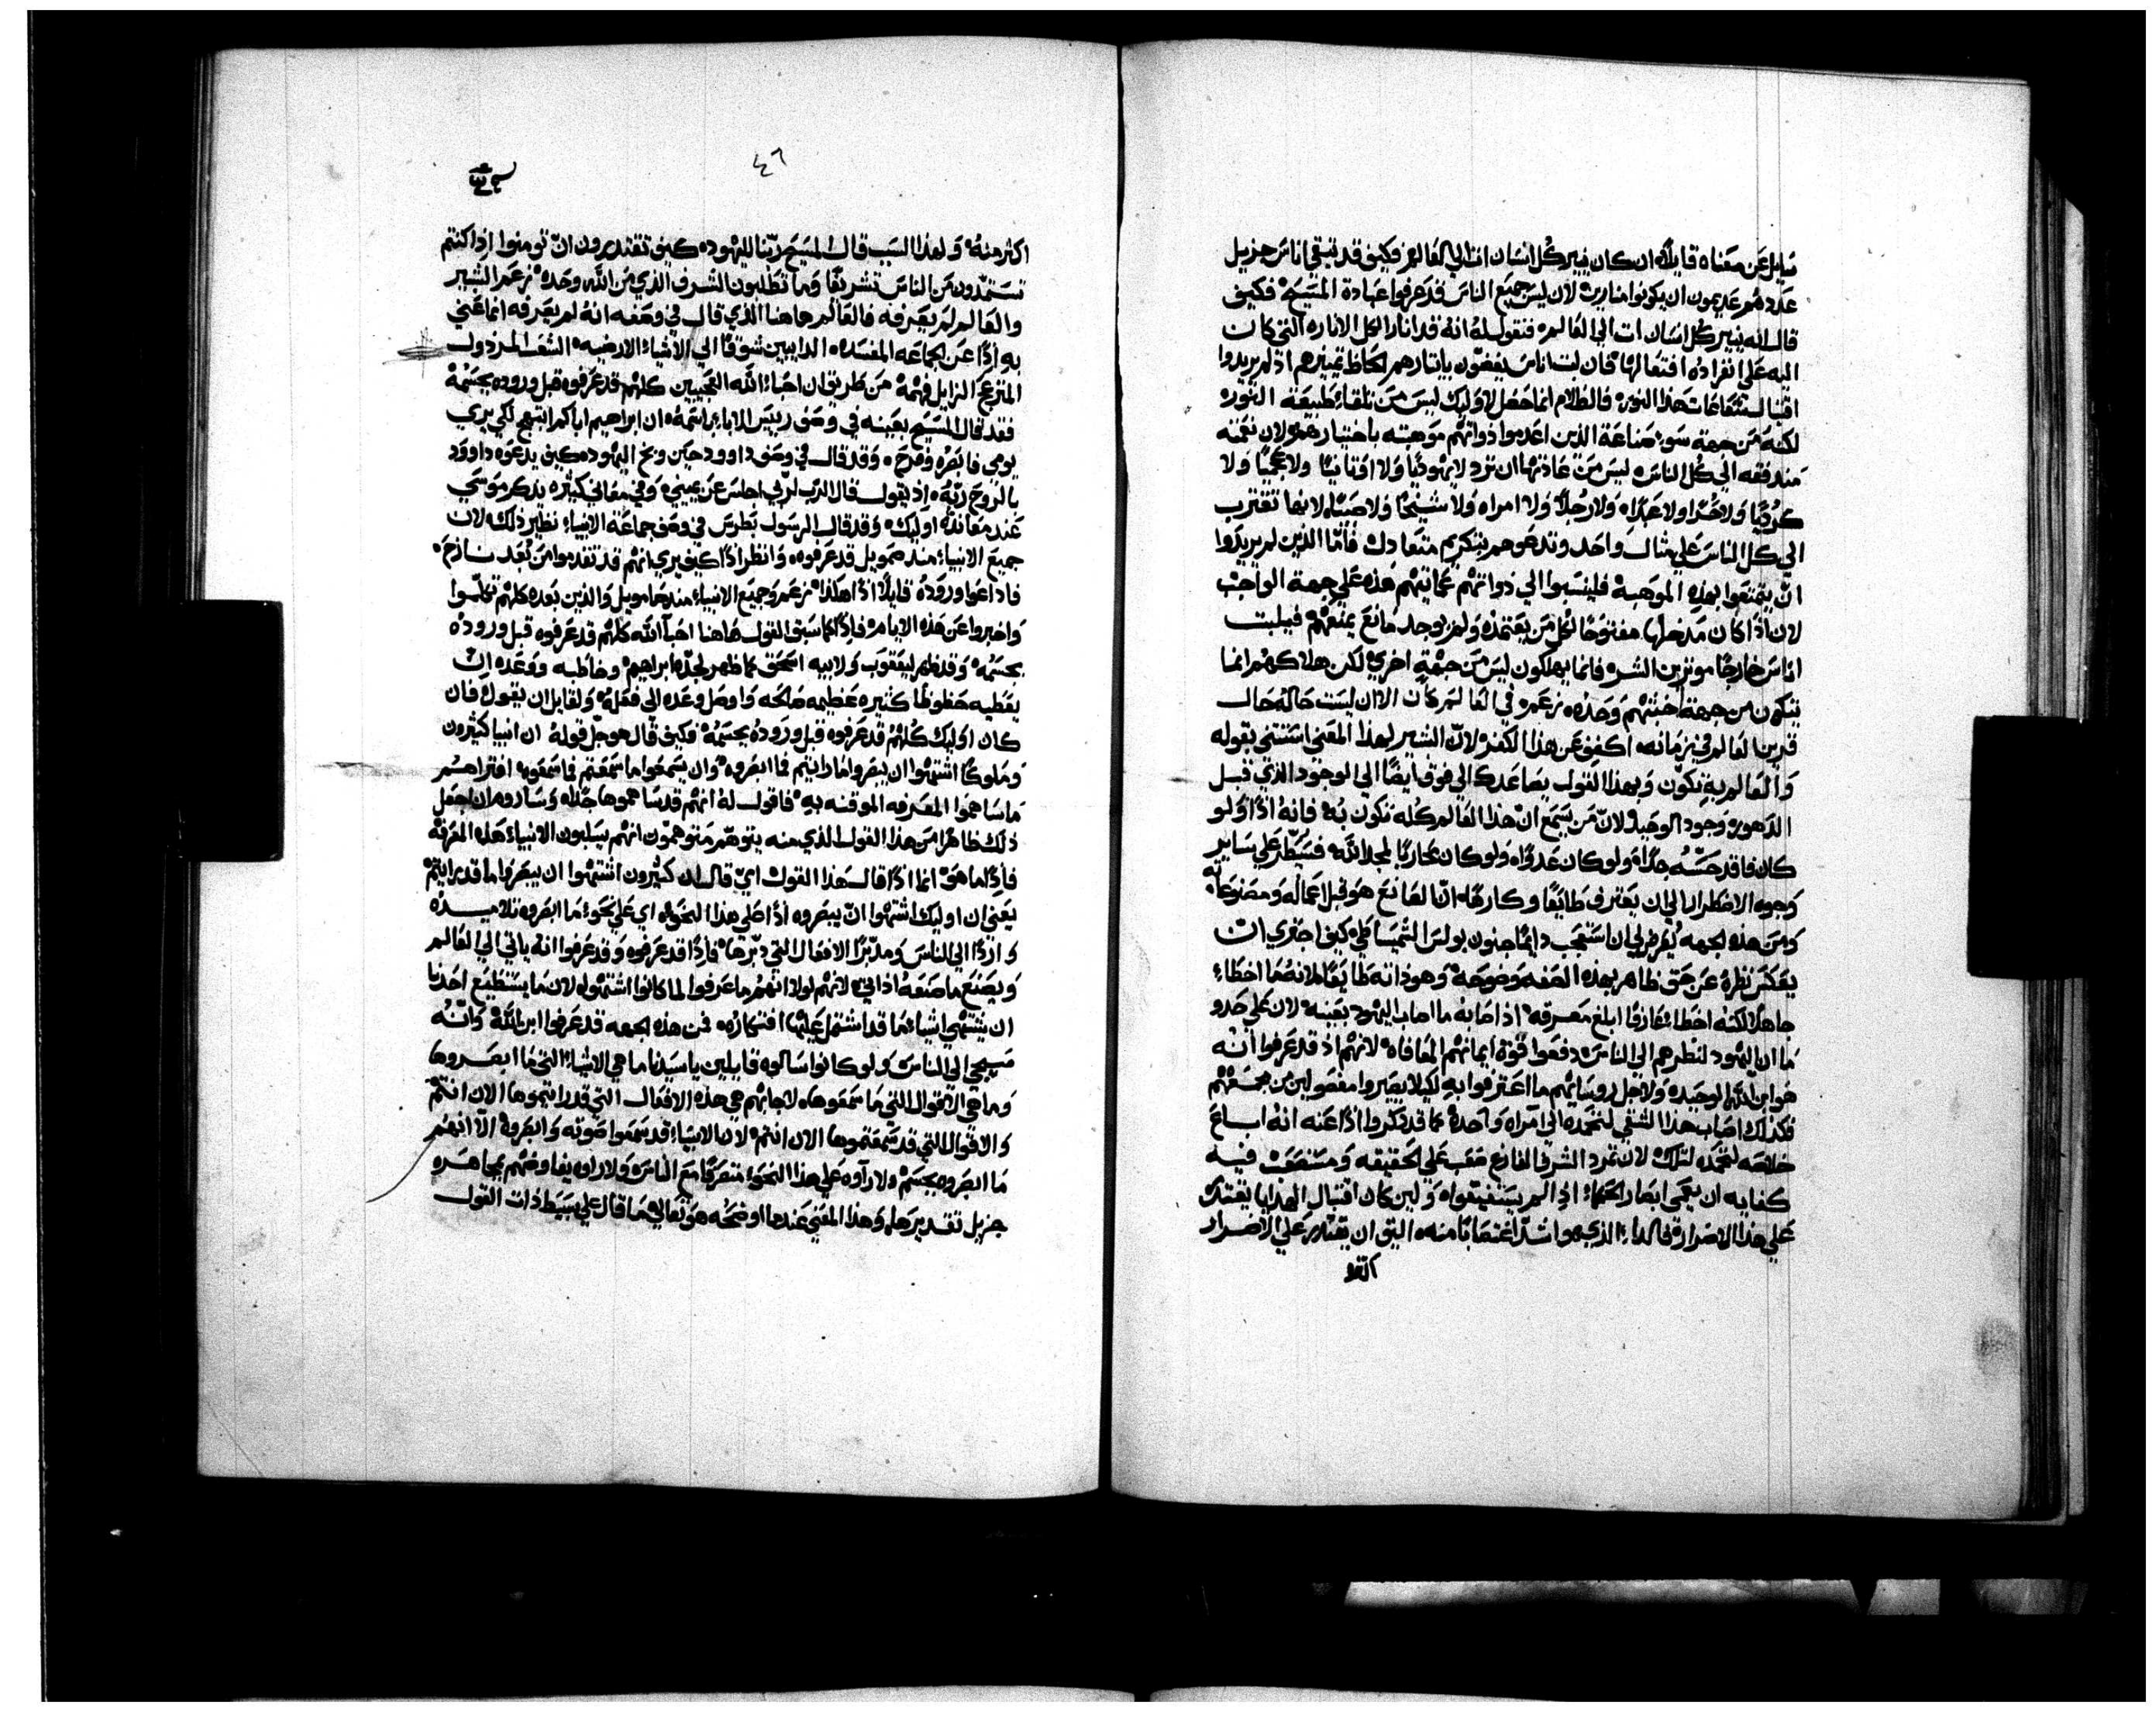 سايل عن معناه قايلاً ان كان ينير كل انسان ات الي العالم فكيف قد تبقي اناس جزيل
عددهم عديمون ان يكونوا منارين لان ليس جميع الناس قد عرفوا عبادة المسيح فكيف
قال انه ينير كل انسان ات الي العالم فنقول له انه قد انار الكل الاناره التي كان
اليه علي انفراده افتعالها فان لبث اناس يغضون بايثارهم الحاظ تمييزهم اذ لم يريدوا
اقتبال شعاعات هذا النور فالظلام انما حصل لاوليك ليس من تلقاء طبيعة النور
لكنه من جهة سوء صناعة الذين اعدموا ذواتهم موهبته باختيارهم لان نعمته
مندفقه الي كل الناس ليس من عادتها ان ترد لا يهوديًا ولا اوثانيًا ولا عجميًا ولا
كرديًا ولا حرًا ولا عبدًا ولا رجلاً ولا امراه ولا شيخًا ولا صبيًا لانها تقترب
الي كل الناس علي مثال واحد وتدعوهم بتكريم متعادل فاما الذين لم يريدوا
ان يتمتعوا بهذه الموهبه فلينسبوا الي ذواتهم عمايتهم هذه علي جهة الواجب
لان اذا كان مدخلها مفتوحًا لكل من يعتمده ولم يوجد مانع يمنعهم فيلبث
اناس خارجًا موثرين الشر فانما يهلكون ليس من جهة اخري لكن هلاكهم انما
يتكون من جهة خبثهم وحده زعم في العالم كان الا ان ليست حاله حال
قرين العالم في زمانه اكفف عن هذا الكفر لان البشير لهذا المعني استثني بقوله
والعالم به تكون وبهذا القول يصاعدك الي فوق ايضًا الي الوجود الذي قبل
الدهور وجود الوحيد لان من يسمع ان هذا العالم كله تكون به فانه اذًا ولو
كان فاقد حسه جدًا ولو كان عدوًا ولو كان محاربًا لمجد الله فسيضطر علي ساير
وجوه الاضطرار الي ان يعترف طايعًا وكارهًا ان الصانع هو قبل اعماله ومصنوعاته
ومن هذه الجهه يعرض لي ان استعجب دايمًا جنون بولس الشميساطي كيف اجتري ان
يعكس نظره عن حق ظاهر بهذه الصفه وضوحه وهوذاته طايعًا لانه ما اخطاء
جاهلاً لكنه اخطاء عارفًا ابلغ معرفه اذ اصابه ما اصاب اليهود بعينه لان علي حذو
ما ان اليهود لنظرهم الي الناس دفعوا قوة ايمانهم المعافاه لانهم اذ قد عرفوا انه
هو ابن الله الوحيد ولاجل روسايهم ما اعترفوا به لكيلا يصيروا مفصولين من مجمعهم
فكذلك اصاب هذا الشقي لتحمده الي امراه واحده كما قد ذكروا اذًا عنه انه اباع
خلاصه لتحمده لتلك لان تمرد الشرف الفارغ صعب علي الحقيقه ومستصعب فيه
كفايه ان يعمي ابصار الحكماء اذا لم يستفيقوا ولين كان اقتبال الهدايا يقتدر
علي هذا الاضرار فالداء الذي هو اشد اغتصابًا منه اليق ان يقتدر علي الاضرار
اكثر
٤٦
اكثر منه ولهذا السبب قال المسيح ربنا لليهود كيف تقتدرون ان تومنوا اذا كنتم
تستمدون من الناس تشريفًا وما تطلبون الشرف الذي من الله وحده زعم البشير
والعالم لم يعرفه فالعالم هاهنا الذي قال في وصفه انه لم يعرفه انما عني
به اذًا عن الجماعه المفسده الدايبين شوقًا الي الاشياء الارضيه الشعب المرذول
المنزعج الزايل فهمه من طريق ان احباء الله العجيبين كلهم قد عرفوه قبل وروده بجسمه
فقد قال المسيح بعينه في وصف رييس الاباء براسه ان ابراهيم اباكم ابتهج لكي يري
يومي فابصره وفرح وقد قال في وصف داوود حين وبخ اليهود كيف يدعوه داوود
بالروح ربه اذ يقول قال الرب لربي اجلس عن يميني وفي معاني كثيره يذكر موسي
عند معانده اوليك وقد قال الرسول بطرس في وصف جماعة الانبياء نظير ذلك لان
جميع الانبياء منذ صمويل قد عرفوه وانظر اذًا كيف يري انهم قد تقدموا من بعد نازح
فاذاعوا وروده قايلاً اذًا هكذا زعم وجميع الانبياء منذ صامويل والذين بعده كلهم تكلموا
واخبروا عن هذه الايام فاذًا كما سبق القول هاهنا احباء الله كلهم قد عرفوه قبل وروده
بجسمه وقد ظهر ليعقوب ولابيه اسحق كما ظهر لجده ابراهيم وخاطبه ووعده ان
يعطيه حظوظًا كثيره عظيمه صالحه واوصل وعده الي فعله ولقايل ان يقول فان
كان اوليك كلهم قد عرفوه قبل وروده بجسمه فكيف قال هو جل قوله ان انبيا كثيرون
وملوكًا اشتهوا ان يبصروا ما رايتم فما ابصروه وان يسمعوا ما سمعتم فما سمعوه افتراهم
ما ساهموا المعرفه الموقنه به فاقول له انهم قد ساهموها جدًا وساروم ان اجعل
ذلك ظاهرًا من هذا القول الذي منه يتوهم متوهمون انهم يسلبون الانبياء هذه المعرفه
فاذًا ما هو انما اذًا قال هذا القول اي قال ان كثيرون اشتهوا ان يبصروا ما قد رايتم
يعني ان اوليك اشتهوا ان يبصروه اذًا علي هذا النحو اي علي نحو ما ابصروه تلاميذه
واردًا الي الناس ومدبرًا الافعال التي دبرها فاذًا قد عرفوه وقد عرفوا انه ياتي الي العالم
ويصنع ما صنعه اذا اتي لانهم لولا انهم ما عرفوا لما كانوا اشتهوه لان ما يستطيع احدنا
ان يشتهي اشياء ما قد اشتمل عليها افتكاره فمن هذه الجهه قد عرفوا ابن الله وانه
سيجي الي الناس ولو كانوا سالوه قايلين يا سيدنا ما هي الاشياء التي ما ابصروها
وما هي الاقوال التي ما سمعوها لاجابهم هي هذه الافعال التي قد رايتموها الان انتم
والاقوال التي قد سمعتموها الان انتم لان الانبياء قد سمعوا صوته وابصروه الا انهم
ما ابصروه بجسم ولا راوه علي هذا النحو متصرفًا مع الناس ولا راوه يفاوضهم بمجاهره
جزيل تقديرها وهذا المعني عندما اوضحه هو تعالي ما قال علي بسيط ذات القول